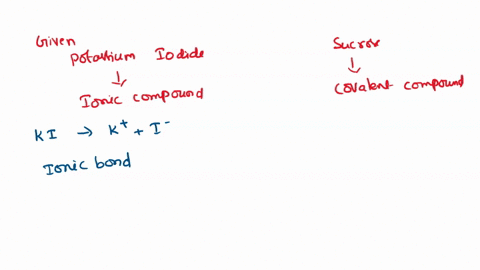 Given
Potassium Iodide
↓
Ionic compound
KI → K⁺ + I⁻
Ionic bond
Sucrose
↓
Covalent compound